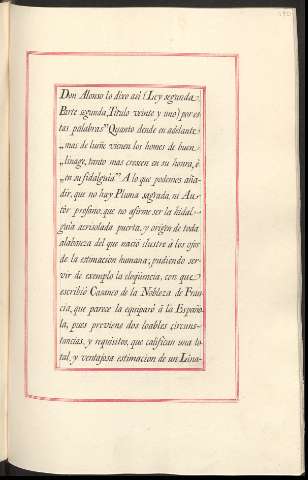 Don Alonso lo dixo asi (Ley segunda
Parte segunda, Titulo veinte y uno) por es
tas palabras" Quanto dende en adelante
„mas de lueñe vienen los homes de buen
„linage, tanto mas crescen en su honra, è
„en su fidalguia" A lo que podemos aña-
dir, que no hay Pluma sagrada, ni Au-
tòr profano, que no afirme ser la hidal-
guia acrisolada puerta, y origen de toda
alabanza del que naciò ilustre à los ojos
de la estimacion humana; pudiendo ser-
vir de exemplo la eloqüencia, con que
escribiò Casaneo de la Nobleza de Fran-
cia, que parece la equiparò à la Españo-
la, pues previene dos loables circuns-
tancias, y requisitos, que califican una to-
tal, y ventajosa estimacion de un Lina-